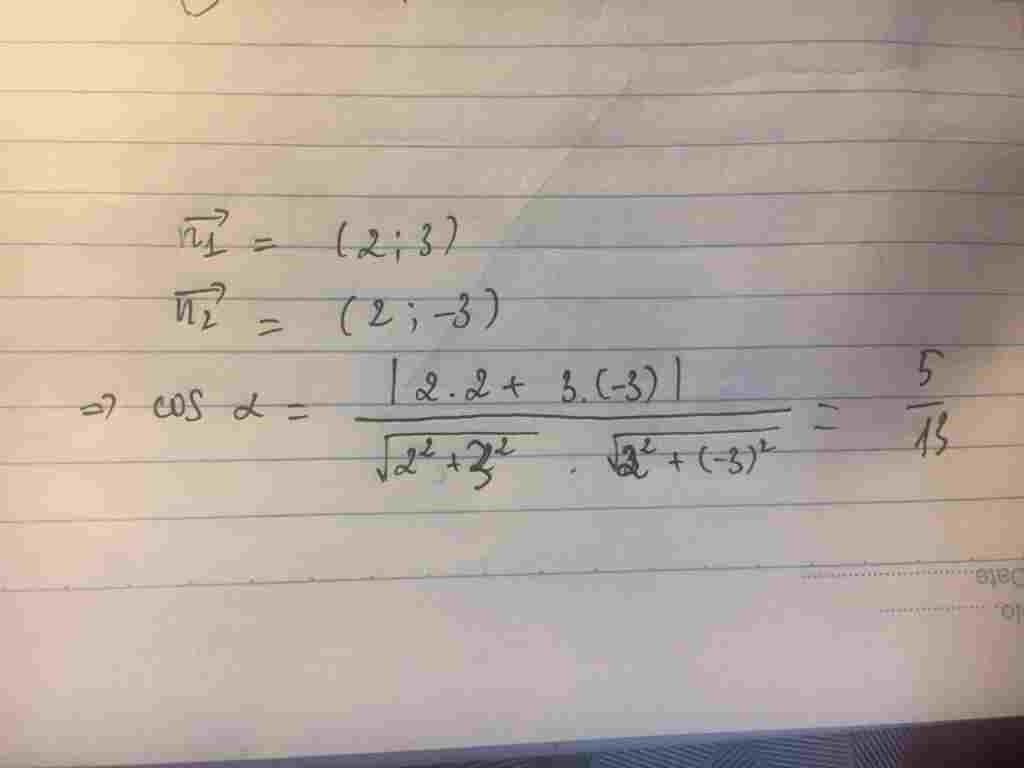 \overrightarrow{n_1} = (2 ; 3)
\overrightarrow{n_2} = (2 ; -3)
⇒ cos α = \frac{|2.2 + 3.(-3)|}{\sqrt{2^2 + 3^2} . \sqrt{2^2 + (-3)^2}} = \frac{5}{13}
Date
No.